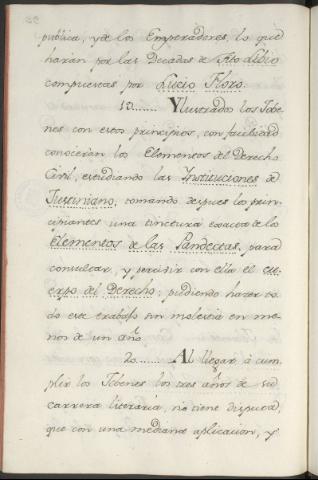 publica, y de los Emperadores, lo que
harán por las Decadas de Tito Libio
compuestas por Lucio Floro.
19...... Ylustrados los Jobe-
nes con estos principios, con facilidad
conocerán los Elementos del Derecho
Civil, estudiando las Instituciones de
Justiniano, tomando despues los prin-
cipiantes una tinctura exacta de los
Elementos de las Pandectas, para
consultar, y percivir con ella el cu-
erpo del Derecho; pudiendo hacer to-
do este trabajo sin molestia en me-
nos de un año.
20...... Al llegar á cum-
plir los Jobenes los tres años de su
carrera literaria, no tiene disputa,
que con una mediana aplicacion, y